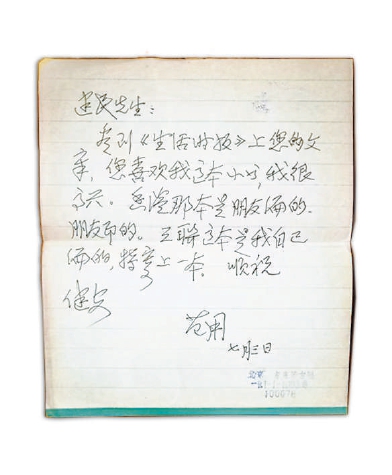 建民先生：
看到《生活时报》上您的文
章，您喜欢我这本小书，我很
高兴。香港那本是朋友编的、
朋友印的。三联这本是我自己
编的，特寄上一本。顺祝
健安
范用
七月三日
北京